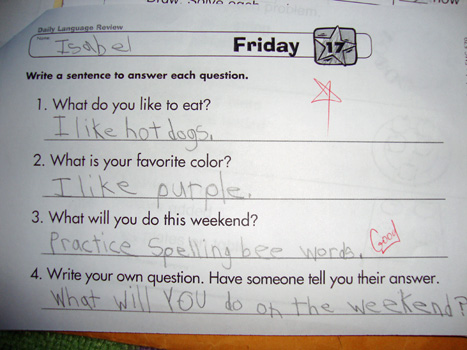 Daily Language Review
Name Isabel
Friday 17
Write a sentence to answer each question.
1. What do you like to eat?
I like hot dogs.
2. What is your favorite color?
I like purple.
3. What will you do this weekend?
Practice Spelling bee words. Good
4. Write your own question. Have someone tell you their answer.
What will YOU do on the weekend?